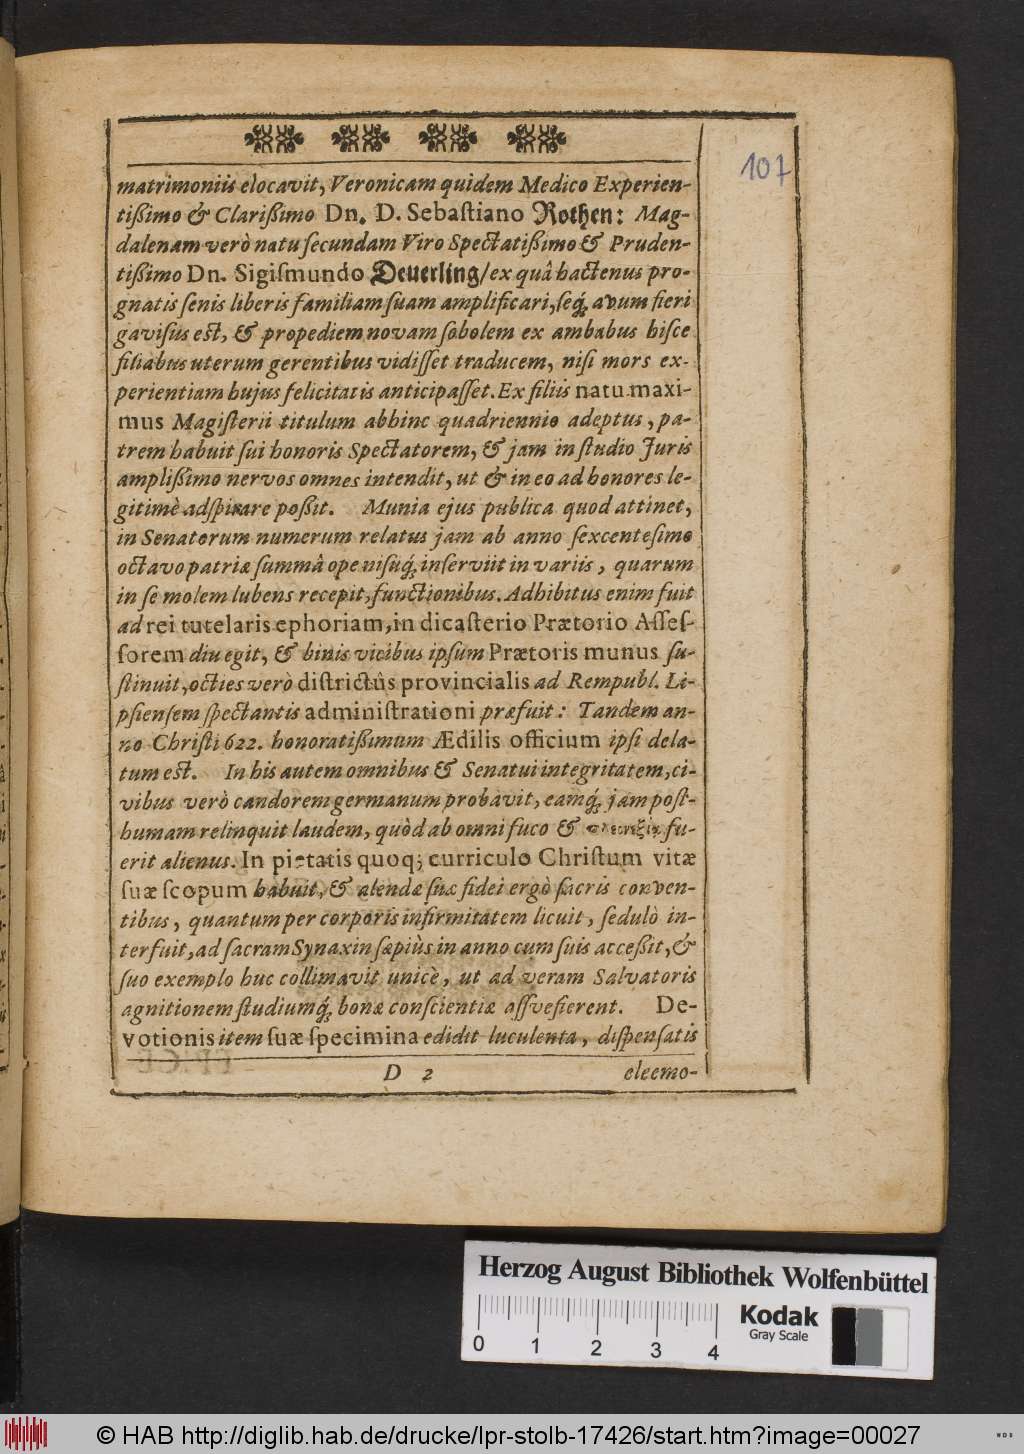 107
matrimoniis elocavit, Veronicam quidem Medico Experien-
tißimo & Clarißimo Dn. D. Sebaſtiano Rothen: Mag-
dalenam verò natu ſecundam Viro Spectatißimo & Pruden-
tißimo Dn. Sigiſmundo Deuerling/ ex quâ hactenus pro-
gnatis ſenis liberis familiam ſuam amplificari, ſeq́; avum fieri
gaviſus eſt, & propediem novam ſobolem ex ambabus hiſce
filiabus uterum gerentibus vidiſſet traducem, niſi mors ex-
perientiam hujus felicitatis anticipaſſet. Ex filiis natu maxi-
mus Magiſterii titulum abhinc quadriennio adeptus, pa-
trem habuit ſui honoris Spectatorem, & jam in ſtudio Juris
amplißimo nervos omnes intendit, ut & in eo ad honores le-
gitimè adſpirare poßit. Munia ejus publica quod attinet,
in Senatorum numerum relatus jam ab anno ſexcenteſimo
octavo patriæ ſummâ ope niſuq́; inſerviit in variis, quarum
in ſe molem lubens recepit, functionibus. Adhibitus enim fuit
ad rei tutelaris ephoriam, in dicaſterio Prætorio Aſſeſ-
ſorem diu egit, & binis vicibus ipſum Prætoris munus ſu-
ſtinuit, octies verò diſtrictûs provincialis ad Rempubl. Li-
pſienſem ſpectantis adminiſtrationi præfuit: Tandem an-
no Chriſti 622. honoratißimum Ædilis officium ipſi dela-
tum eſt. In his autem omnibus & Senatui integritatem, ci-
vibus verò candorem germanum probavit, eamq́; jam poſt-
humam relinquit laudem, quòd ab omni fuco & fu-
erit alienus. In pietatis quoq; curriculo Chriſtum vitæ
ſuæ ſcopum habuit, & alendæ ſuæ fidei ergò ſacris conven-
tibus, quantum per corporis infirmitatem licuit, ſedulò in-
terfuit, ad ſacram Synaxin ſæpiùs in anno cum ſuis acceßit, &
ſuo exemplo huc collimavit unicè, ut ad veram Salvatoris
agnitionem ſtudiumq́; bonæ conſcientiæ aſſveſierent. De-
votionis item ſuæ ſpecimina edidit luculenta, diſpenſatis
D 2 eleemo-
Herzog August Bibliothek Wolfenbüttel
0 1 2 3 4
Kodak
Gray Scale
© HAB http://diglib.hab.de/drucke/lpr-stolb-17426/start.htm?image=00027